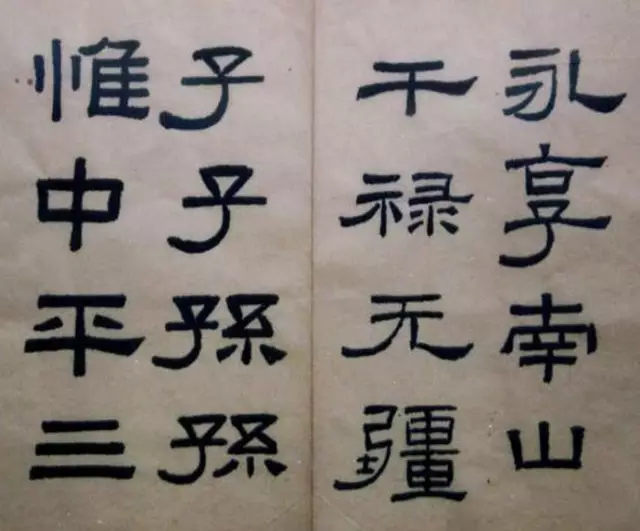 永享南山
干禄无疆
子子孫孫
惟中平三